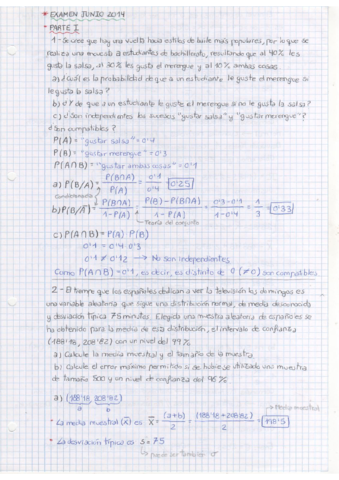 * EXAMEN JUNIO 2014
* PARTE I
1.- Se cree que hay una vuelta hacia estilos de baile más populares, por lo que se
realiza una encuesta a estudiantes de bachillerato, resultando que al 40% les
gusta la salsa, al 30% les gusta el merengue y al 10% ambas cosas
a) ¿Cuál es la probabilidad de que a un estudiante le guste el merengue si
le gusta la salsa?
b) ¿Y de que a un estudiante le guste el merengue si no le gusta la salsa?
c) ¿Son independientes los sucesos "gustar salsa" y "gustar merengue"?
¿Son compatibles?
P(A) = "gustar salsa" = 0'4
P(B) = "gustar merengue" = 0'3
P(A∩B) = "gustar ambas cosas" = 0'1
a) P(B/A) = P(B∩A) / P(A) = 0'1 / 0'4 = 0'25
Condicionada
b) P(B/Ā) = P(B∩Ā) / 1-P(A) = P(B)-P(B∩A) / 1-P(A) = 0'3-0'1 / 1-0'4 = 1/3 = 0'33
Teoría del conjunto
c) P(A∩B) = P(A) P(B)
0'1 = 0'4 0'3
0'1 ≠ 0'12 → No son independientes
Como P(A∩B) = 0'1, es decir, es distinto de 0 (≠0) son compatibles
2.- El tiempo que los españoles dedican a ver la televisión los domingos es
una variable aleatoria que sigue una distribución normal, de media desconocida
y desviación típica 75 minutos. Elegida una muestra aleatoria de españoles se
ha obtenido para la media de esa distribución, el intervalo de confianza
(188'18, 208'82) con un nivel del 99%
a) Calcule la media muestral y el tamaño de la muestra.
b) Calcule el error máximo permitido si se hubiese utilizado una muestra
de tamaño 500 y un nivel de confianza del 96%
a) (188'18, 208'82)
a b
→ Media muestral
* La media muestral (X̄) es X̄ = (a+b) / 2 = (188'18+208'82) / 2 = 198'5
* La desviación típica es S = 75
→ puede ser también σ